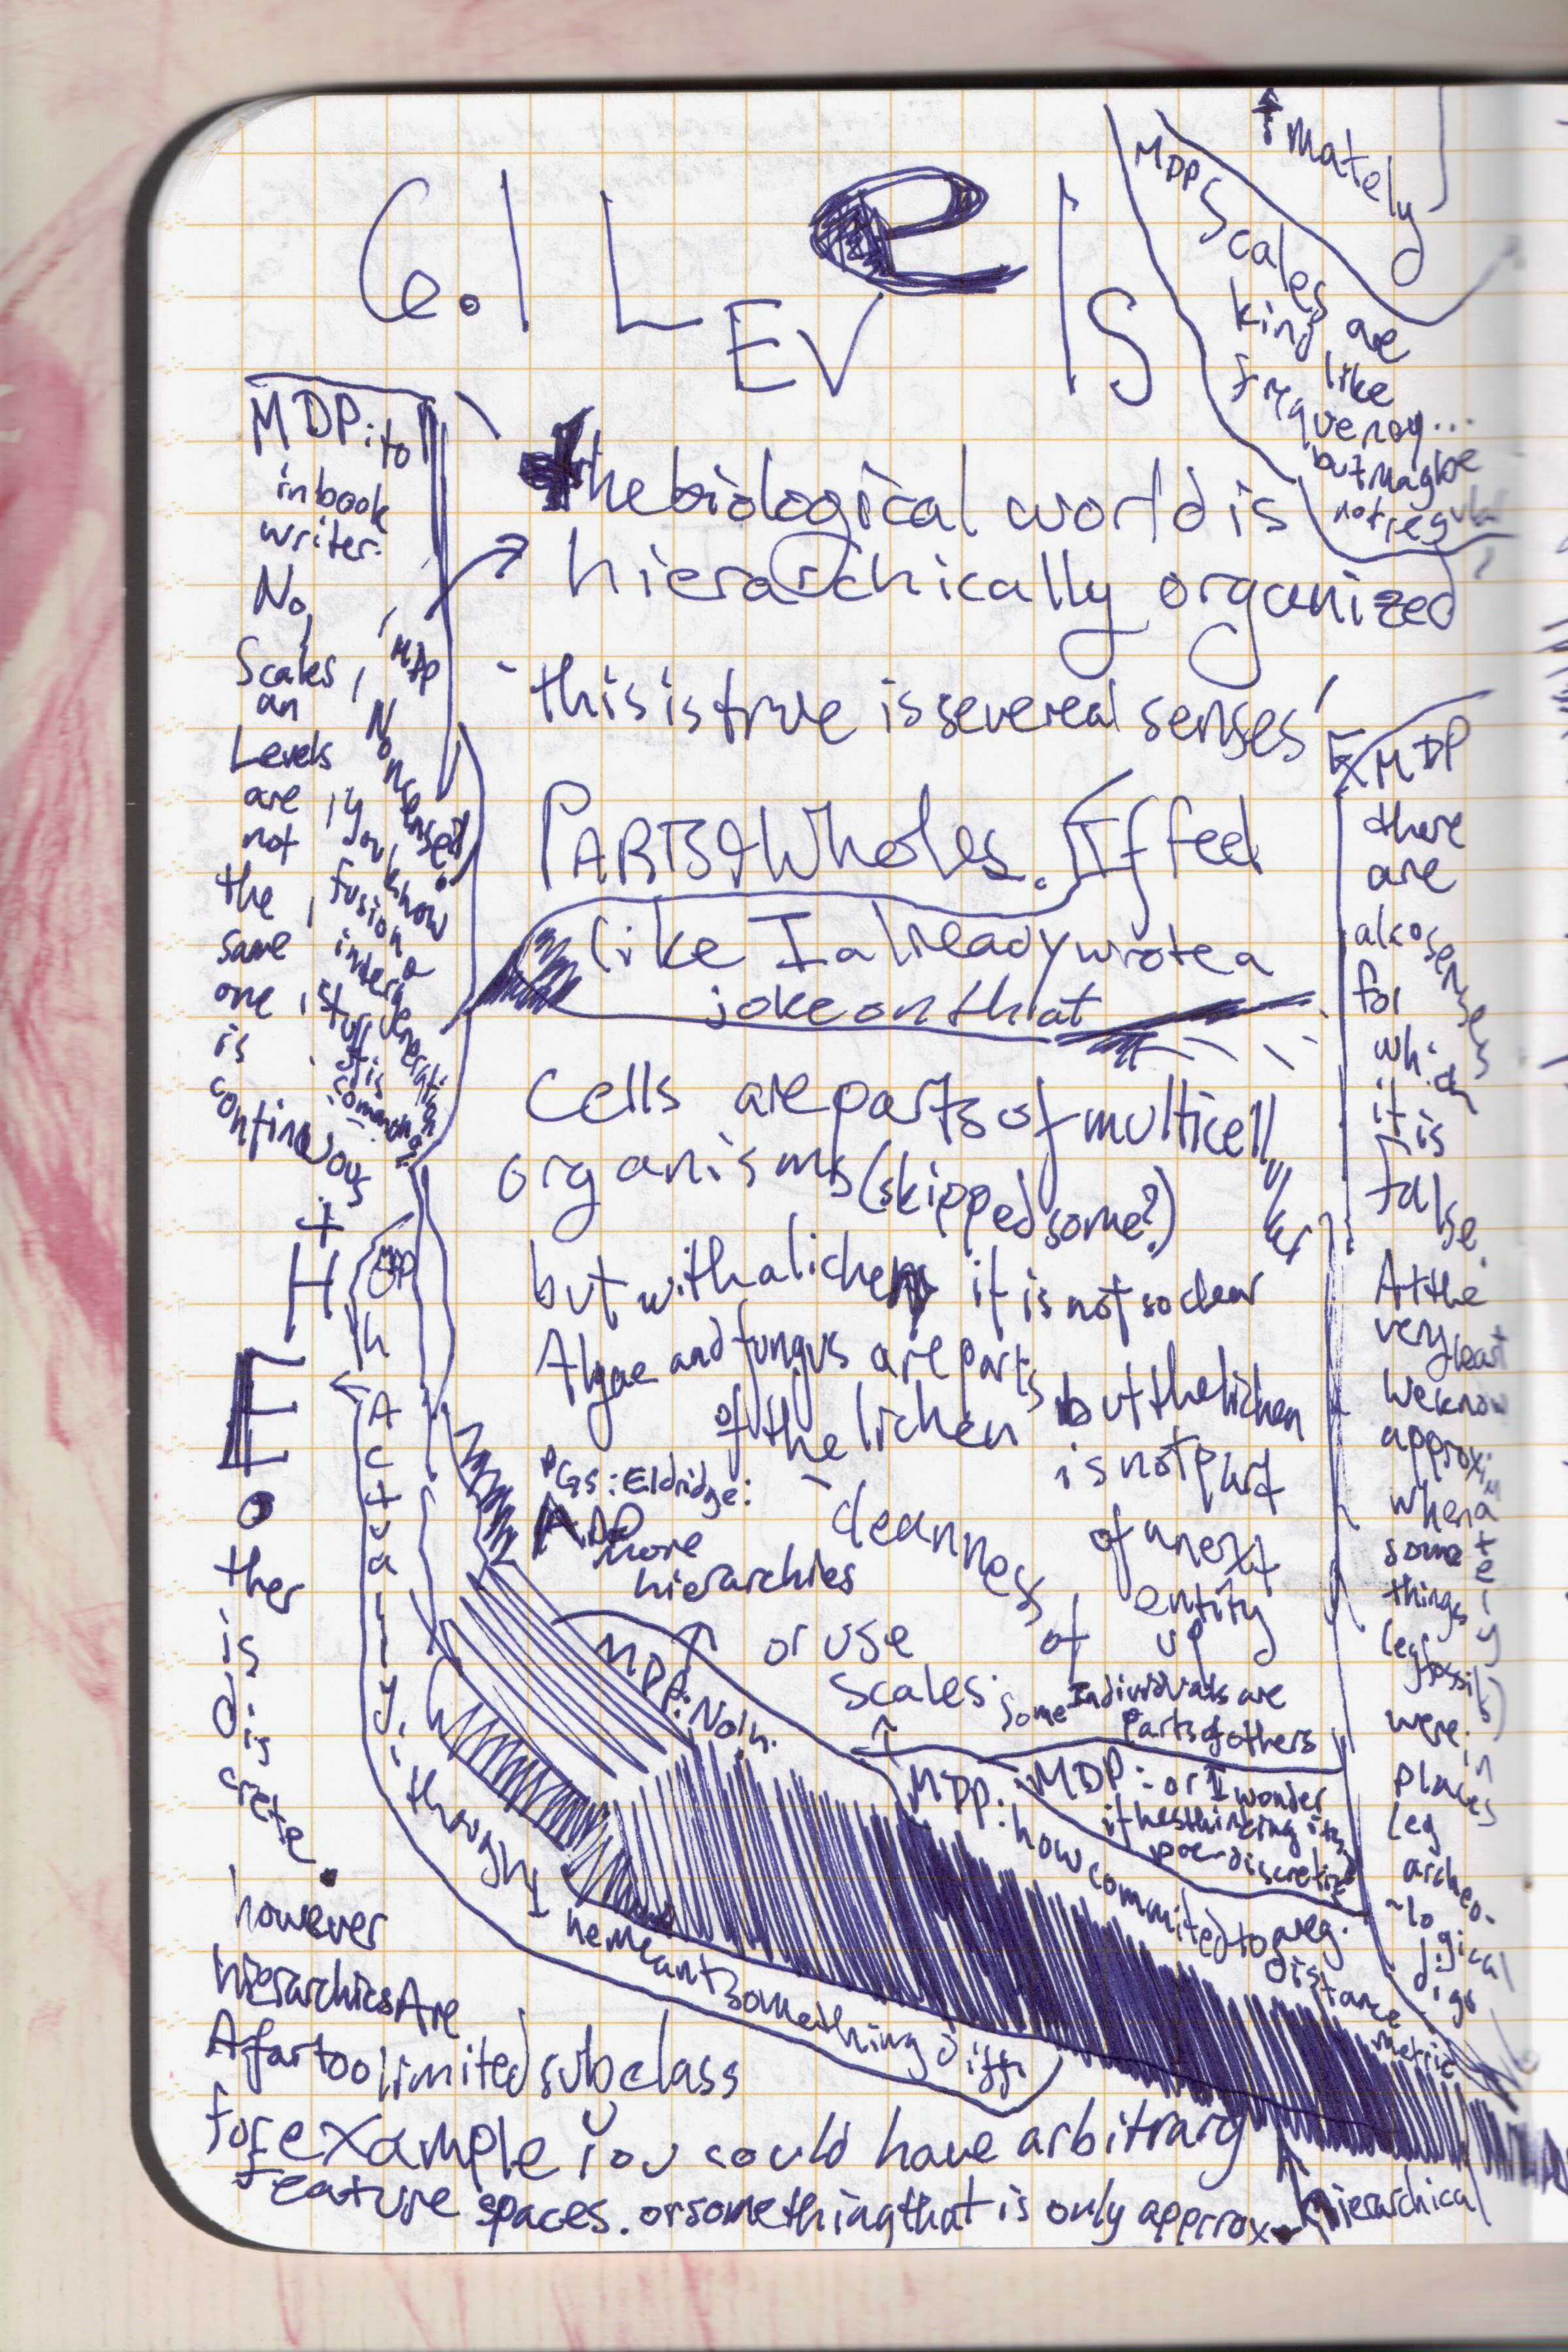 6.1 LEVElS
↑ mately
MDP Scales are
kind like
frequency...
but maybe
not regular
MDP: to
in book
writer.
No,
Scales
an
Levels
are
not
the
same
one
is
continuous
+
H
E
o
ther
is
dis
crete.
MDP
Nonsense!
you know
fusion a
inter a
stuff
it is
the biological world is
hierarchically organized
this is true is severeal senses
PARTS & Wholes. If feel
like I already wrote a
joke on that
Cells are parts of multicell
organisms (skipped some?)
but with a lichen it is not so clear
Algae and fungus are parts
of the lichen but the lichen
is not part
of a next
entity
up
PGS: Eldridge:
ADD
more
hierarchies
cleanness
of
or use
scales.
Some Individuals are
Parts of others
MDP: No,
MDP: or I wonder
if hes thinking its
pre-discretize
MDP: how commited to avg.
distance
metric
MDP
there
are
also senses
for
which
it is
false.
At the
very least
we know
approximately
when a
some
things
leg
fossil
were in
places
leg
archeo-
logical
digs
MDP
h
Actually,
i thought
he meant something diff.
however
hierarchies Are
A far too limited subclass
for example you could have arbitrary
Feature spaces. or something that is only approx. hierarchical